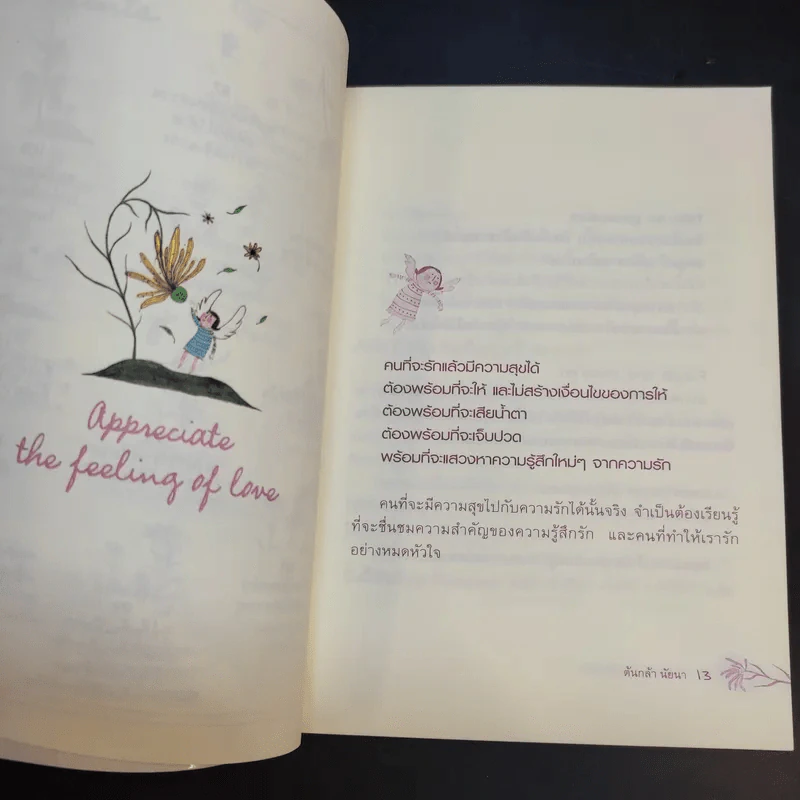 Appreciate
the feeling of love
คนที่จะรักแล้วมีความสุขได้
ต้องพร้อมที่จะให้ และไม่สร้างเงื่อนไขของการให้
ต้องพร้อมที่จะเสียน้ำตา
ต้องพร้อมที่จะเจ็บปวด
พร้อมที่จะแสวงหาความรู้สึกใหม่ๆ จากความรัก
คนที่จะมีความสุขไปกับความรักได้นั้นจริง จำเป็นต้องเรียนรู้
ที่จะชื่นชมความสำคัญของความรู้สึกรัก และคนที่ทำให้เรารัก
อย่างหมดหัวใจ
ต้นกล้า นัยนา 13